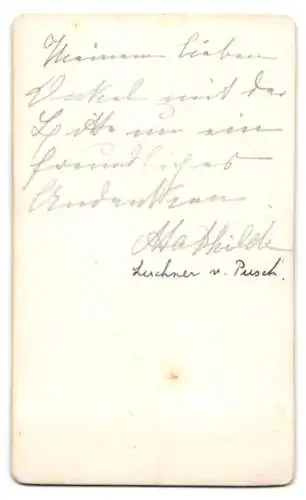 Meinem lieben
Onkel mit der
Bitte um ein
freundliches
Andenken.
Mathilde
Lerchner v. Pusch.